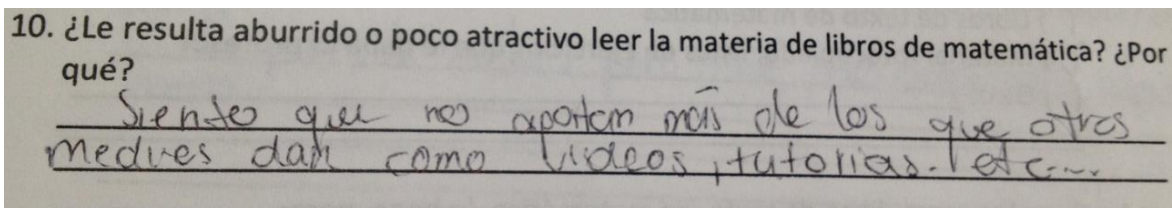 10. ¿Le resulta aburrido o poco atractivo leer la materia de libros de matemática? ¿Por
qué?
Siento que no aportan más de los que otros
medues dan como videos, tutorias. etc...